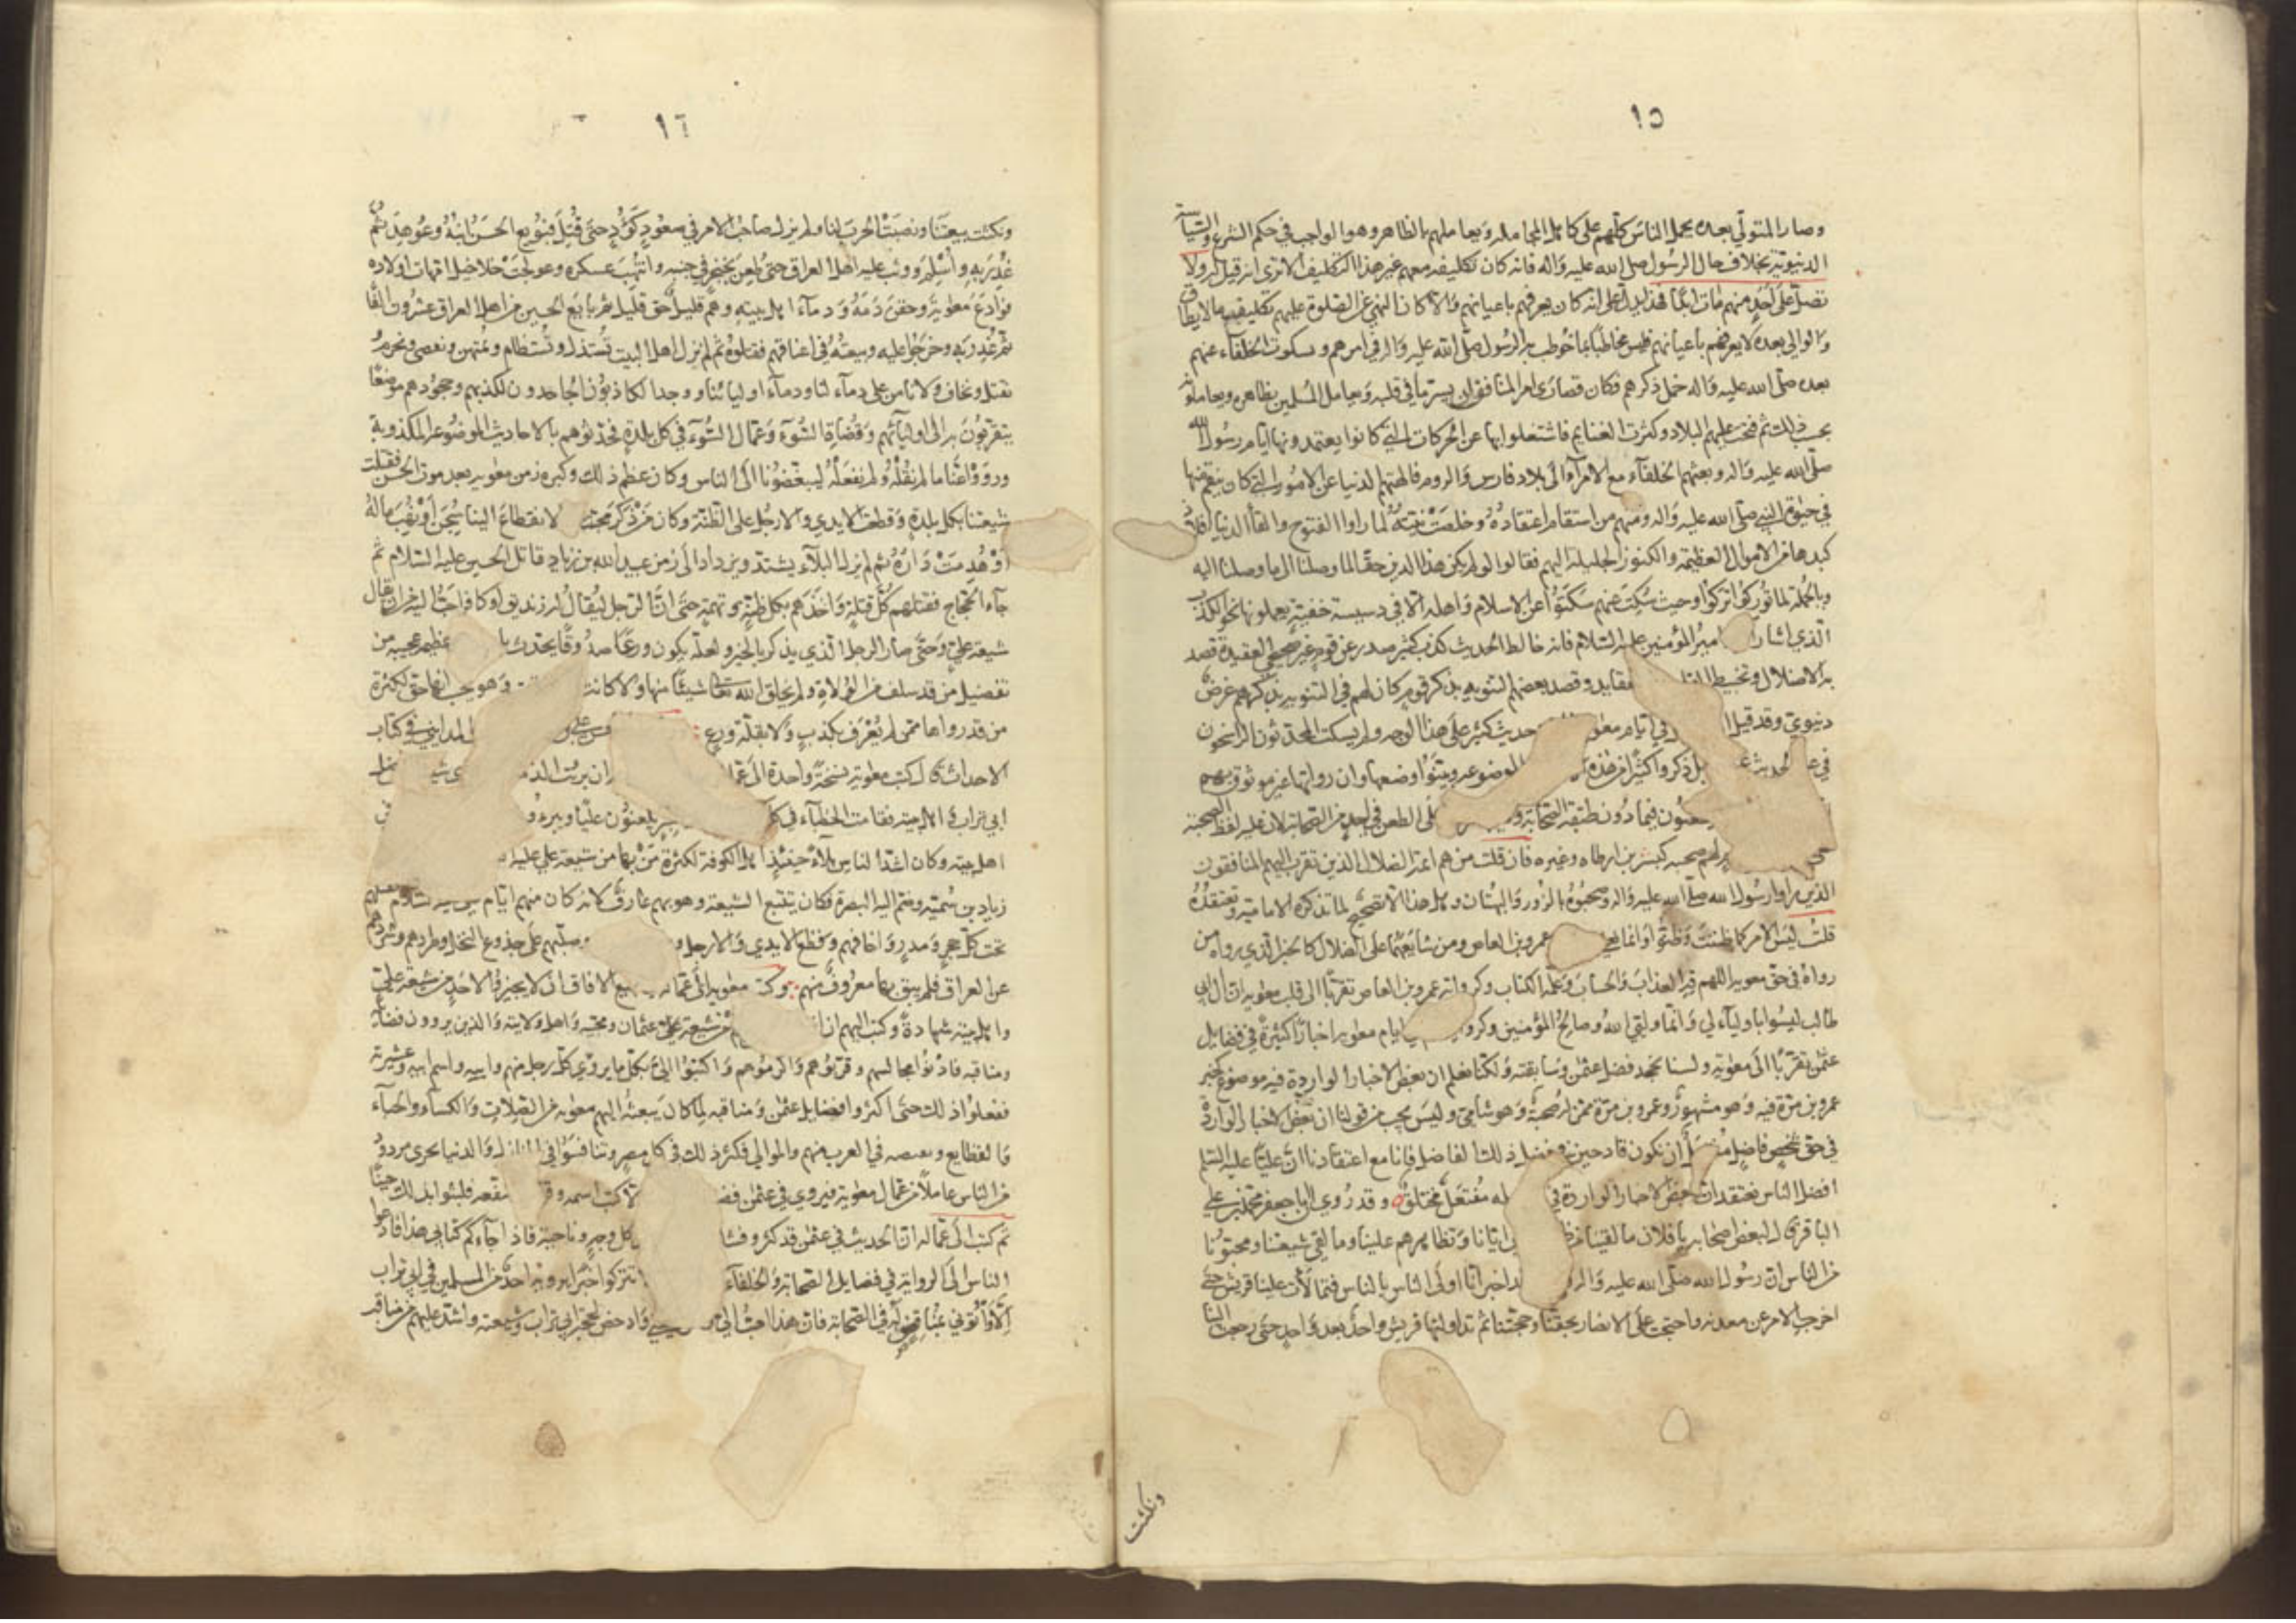 ١٥
وصار المتولّي بعده يحمل الناس كلّهم على كاهل المجاملة ويعاملهم بالظاهر وهو الواجب في حكم الشرع والسياسة
الدنيويّة بخلاف حال الرسول صلى الله عليه واله فانه كان تكليفه معهم غير هذا التكليف الا ترى انه قيل له ولا
تصلّ على احد منهم مات ابدًا فهذا يدل على انه كان يعرفهم باعيانهم والا كان النهي عن الصلوة عليهم تكليف ما لا يطاق
والوالي بعده لا يعرفهم باعيانهم فليس مخاطبًا بما خوطب به الرسول صلّى الله عليه واله في امرهم وبسكوت الخلفاء عنهم
بعده صلّى الله عليه واله خمل ذكرهم فكان قصارى امر المنافق ان يسر ما في قلبه ويعامل المسلمين بظاهره ويعاملونه
بحسب ذلك ثم فتحت عليهم البلاد وكثرت الغنايم فاشتغلوا بها عن الحركات التي كانوا يعتمدونها ايام رسول الله
صلّى الله عليه واله وبعثهم الخلفاء مع الامراء الى بلاد فارس والروم فالهتهم الدنيا عن الامور التي كان ينقم منها
في حيوة النبي صلّى الله عليه واله ومنهم من استقام اعتقاده وخلصت نيته لما راوا الفتوح والقاء الدنيا افلاذ
كبدها من الاموال العظيمة والكنوز الجليلة اليهم فقالوا لو لم يكن هذا الدين حقًا لما وصلنا الى ما وصلنا اليه
وبالجملة لما تركوا تركوا وحيث سكت عنهم سكتوا عن الاسلام واهله الا في دسيسة خفيّة يعملونها نحو الكذب
الذي اشار امير المؤمنين عليه السلام فانه خالط الحديث كذب كثير صدر عن قوم غير صحيحي العقيدة قصد
به الاضلال وتخبيط العقايد وقصد بعضهم التنويه بذكر قوم كان لهم في التنويه بذكرهم غرض
دنيوي وقد قيل في ايام معو حديث كثير على هذا الوجه ولم يسكت المحدّثون الراسخون
في الحديث بل ذكروا كثيرًا من هذه الموضوعة وبيّنوا وضعها وان رواتها غير موثوق بهم
يطعنون فيما دون طبقة الصحابة على الطعن في احد من الصحابة لان عليه لفظ الصحبة
صحبة كبسر بن ارطاه وغيره فان قلت من هم ائمة الضلال الذين تقرب اليهم المنافقون
الذين راوا رسول الله صلّى الله عليه واله وصحبوه بالزور والبهتان وهل هذا الا تصحيح لما تذكره الامامية وتعتقده
قلت ليس الامر كما ظننت وظنّوا وانما عمرو بن العاص ومن شايعهما على الضلال كالخبر الذي رواه من
رواه في حق معوية اللهم قه العذاب والحساب وعلّمه الكتاب وكرواية عمرو بن العاص تقرّبًا الى قلب معوية ان ال ابي
طالب ليسوا باولياء لي وانما وليّي الله وصالح المؤمنين وكرو ايام معوية اخبارًا كثيرة في فضايل
عثمن تقرّبًا الى معوية ولسنا نجحد فضل عثمن وسابقته ولكنا نعلم ان بعض الاخبار الواردة فيه موضوع كخبر
عمرو بن مرّة فيه وهو مشهور وعمرو بن مرّة ممن له صحبة وهو شامي وليس يجب من قولنا ان بعض الاخبار الواردة
في حق شخص فاضل ان نكون قادحين في فضل ذلك الفاضل فانا مع اعتقادنا ان عليًا عليه السلم
افضل الناس نعتقد ان بعض الاخبار الواردة في له مفتعل مختلق وقد روي ان ابا جعفر محمّد بن علي
الباقر قال لبعض اصحابه يا فلان ما لقينا من ظ ايّانا وتظاهرهم علينا وما لقي شيعتنا ومحبّونا
من الناس ان رسول الله صلّى الله عليه واله اخبر انا اولى الناس بالناس فتمالأت علينا قريش حتى
اخرجت الامر عن معدنه واحتجت على الانصار بحقّنا وحجّتنا ثم تداولتها قريش واحد بعد واحد حتى رجعت الينا
ونكثت
١٦
ونكثت بيعتنا ونصبت الحرب لنا ولم يزل صاحب الامر في صعود كؤد حتى قتل فبويع الحسن ابنه وعوهد ثم
غدر به واسلم ووثب عليه اهل العراق حتى طعن بخنجر في جنبه وانتهب عسكره وعولجت خلاخيل امهات اولاده
فوادع معوية وحقن دمه ودماء اهل بيته وهم قليل حق قليل ثم بايع الحسين من اهل العراق عشرون الفًا
ثم غدر به وخرجوا عليه وبيعته في اعناقهم فقتلوه ثم لم نزل اهل البيت نستذل ونستضام ونمتهن ونقصى ونحرم
ونقتل ونخاف ولا نامن على دماءنا ودماء اوليائنا ووجد الكاذبون الجاحدون لكذبهم وجحودهم موضعًا
يتقرّبون به الى اوليائهم وقضاة السوء وعمّال السوء في كل بلدة فحدّثوهم بالاحاديث الموضوعة المكذوبة
ورووا عنّا ما لم نقله ولم نفعله ليبغضونا الى الناس وكان عظم ذلك وكبره زمن معوية بعد موت الحسن فقتلت
شيعتنا بكل بلدة وقطعت الايدي والارجل على الظنّة وكان من ذكر بحبّنا والانقطاع الينا سجن او نهب ماله
او هدمت داره ثم لم يزل البلاء يشتد ويزداد الى زمن عبيد الله بن زياد قاتل الحسين عليه السلام ثم
جاء الحجّاج فقتلهم كل قتلة واخذهم بكل ظنّة وتهمة حتى ان الرجل ليقال له زنديق او كافر احبّ اليه من ان يقال
شيعة علي وحتى صار الرجل الذي يذكر بالخير ولعله يكون ورعًا صدوقًا يحدث با عظيمة عجيبة من
تفضيل من قد سلف من الولاة ولم يخلق الله تعالى شيئًا منها ولا كانت وهو يحسب انها حق لكثرة
من قد رواها ممن لم يعرف بكذب ولا بقلّة ورع المدايني في كتاب
الاحداث قال كتب معوية نسخة واحدة الى عمّا ان برئت الذمّ
ابي تراب واهل بيته فقامت الخطباء في كل منبر يلعنون عليًا ويبرءو
اهل بيته وكان اشد الناس بلاء حينئذ اهل الكوفة لكثرة من بها من شيعة علي عليه
زياد بن سميّة وضم اليه البصرة فكان يتتبع الشيعة وهو بهم عارف لانه كان منهم ايام
تحت كل حجر ومدر واخافهم وقطع الايدي والارجل و وصلبهم على جذوع النخل وطردهم وشرّدهم
عن العراق فلم يبق بها معروف منهم وكتب معوية الى عمّاله الافاق ان لا يجيزوا لاحد من شيعة علي
واهل بيته شهادة وكتب اليهم ان من شيعة عثمان ومحبّيه واهل ولايته والذين يروون فضايله
ومناقبه فادنوا مجالسهم وقرّبوهم واكرموهم واكتبوا اليّ بكل ما يروي كل رجل منهم واسمه واسم ابيه وعشيرته
ففعلوا ذلك حتى اكثروا فضايل عثمن ومناقبه لما كان يبعثه اليهم معوية من الصلات والكساء والحباء
والقطايع ويفيضه في العرب منهم والموالي فكثر ذلك في كل مصر وتنافسوا في المنازل والدنيا
من الناس عاملًا من عمّال معوية فيروي في عثمن الا كتب اسمه وقر فلبثوا بذلك حينًا
ثم كتب الى عمّاله ان الحديث في عثمن قد كثر وفشا كل وجه وناحية فاذا جاءكم كتابي هذا فادعوا
الناس الى الرواية في فضايل الصحابة والخلفاء تتركوا خبرًا يرويه احد من المسلمين في ابي تراب
الا واتوني بمناقض له في الصحابة فان هذا احبّ اليّ وادحض لحجّة ابي تراب وشيعته واشد عليهم من مناقب